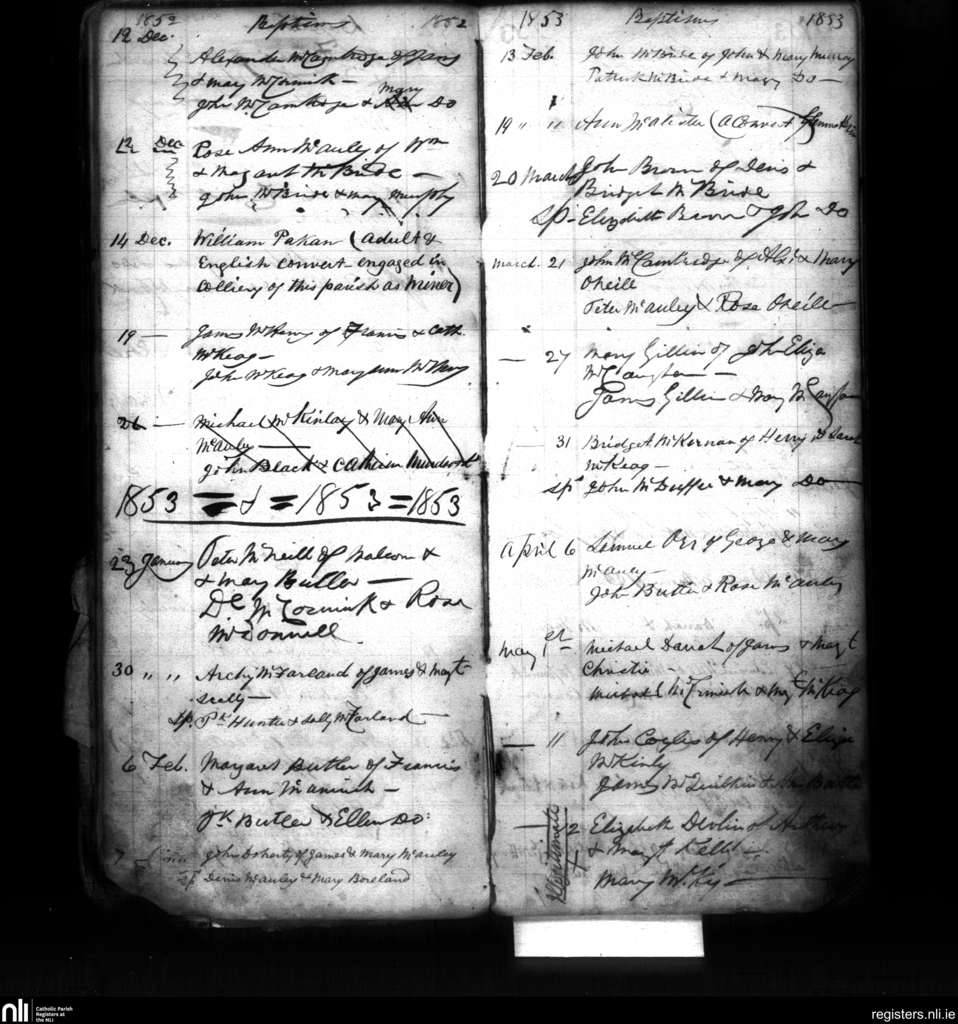 1852 Baptisms 1852
12 Dec.
Alexander McCambridge of James
& Mary McCormick —
John McCambridge & Mary Do
12 Dec Rose Ann McAuley of Wm
& Margaret McBride —
John McBride & Mary Murphy
14 Dec. William Pakan (adult &
English convert engaged in
Colliery of this parish as Miner)
19 — James McHenry of Francis & Cath.
McKeag —
John McKeag & Mary Ann McHenry
26 — Michael McKinlay & Mary Ann
McAuley —
John Black & Catherine
1853 = & = 1853 = 1853
23 January Peter McNeill of Malcom &
& Mary Butler —
Dl McCormick & Rose
McDonnell
30 " " Archy McFarland of James & Mayt
Scally —
Sp. Pk Hunter & Sally McFarland —
6 Feb. Margaret Butler of Francis
& Ann McAninch —
Pk Butler & Ellen Do.
7 John Doherty of James & Mary McAuley
Sp Denis McAuley & Mary Boreland
1853 Baptisms 1853
13 Feb John McBride of John & Mary Murray
Patrick McBride & Mary Do —
19 " " Ann McAlister (a Convert
20 March John Brown of Denis &
Bridget McBride
Sp - Elizabeth Brown & John Do
March. 21 John McCambridge of Alexr & Mary
O'neill
Peter McAuley & Rose O'neill —
— 27 Mary Gillin of John & Eliza
McCaughan —
James Gillin & Mary McCaughan
— 31 Bridget McKernan of Henry & Sarah
McKeag —
Sps John McDuffee & Mary Do —
April 6 Samuel Orr of George & Mary
McAuley —
John Butler & Rose McAuley
May 1st Michael Darrah of James & Mayt
Christie —
Michael McCormick & Mayt McKeag
— 11 John Coyles of Henry & Eliza
McKinly
James McQuilkin & Ann Butler
Illegitimate
— 12 Elizabeth Devlin of Arthur
& Mayt Kelly —
Mary McKay —
nli
Catholic Parish
Registers at
the NLI
registers.nli.ie